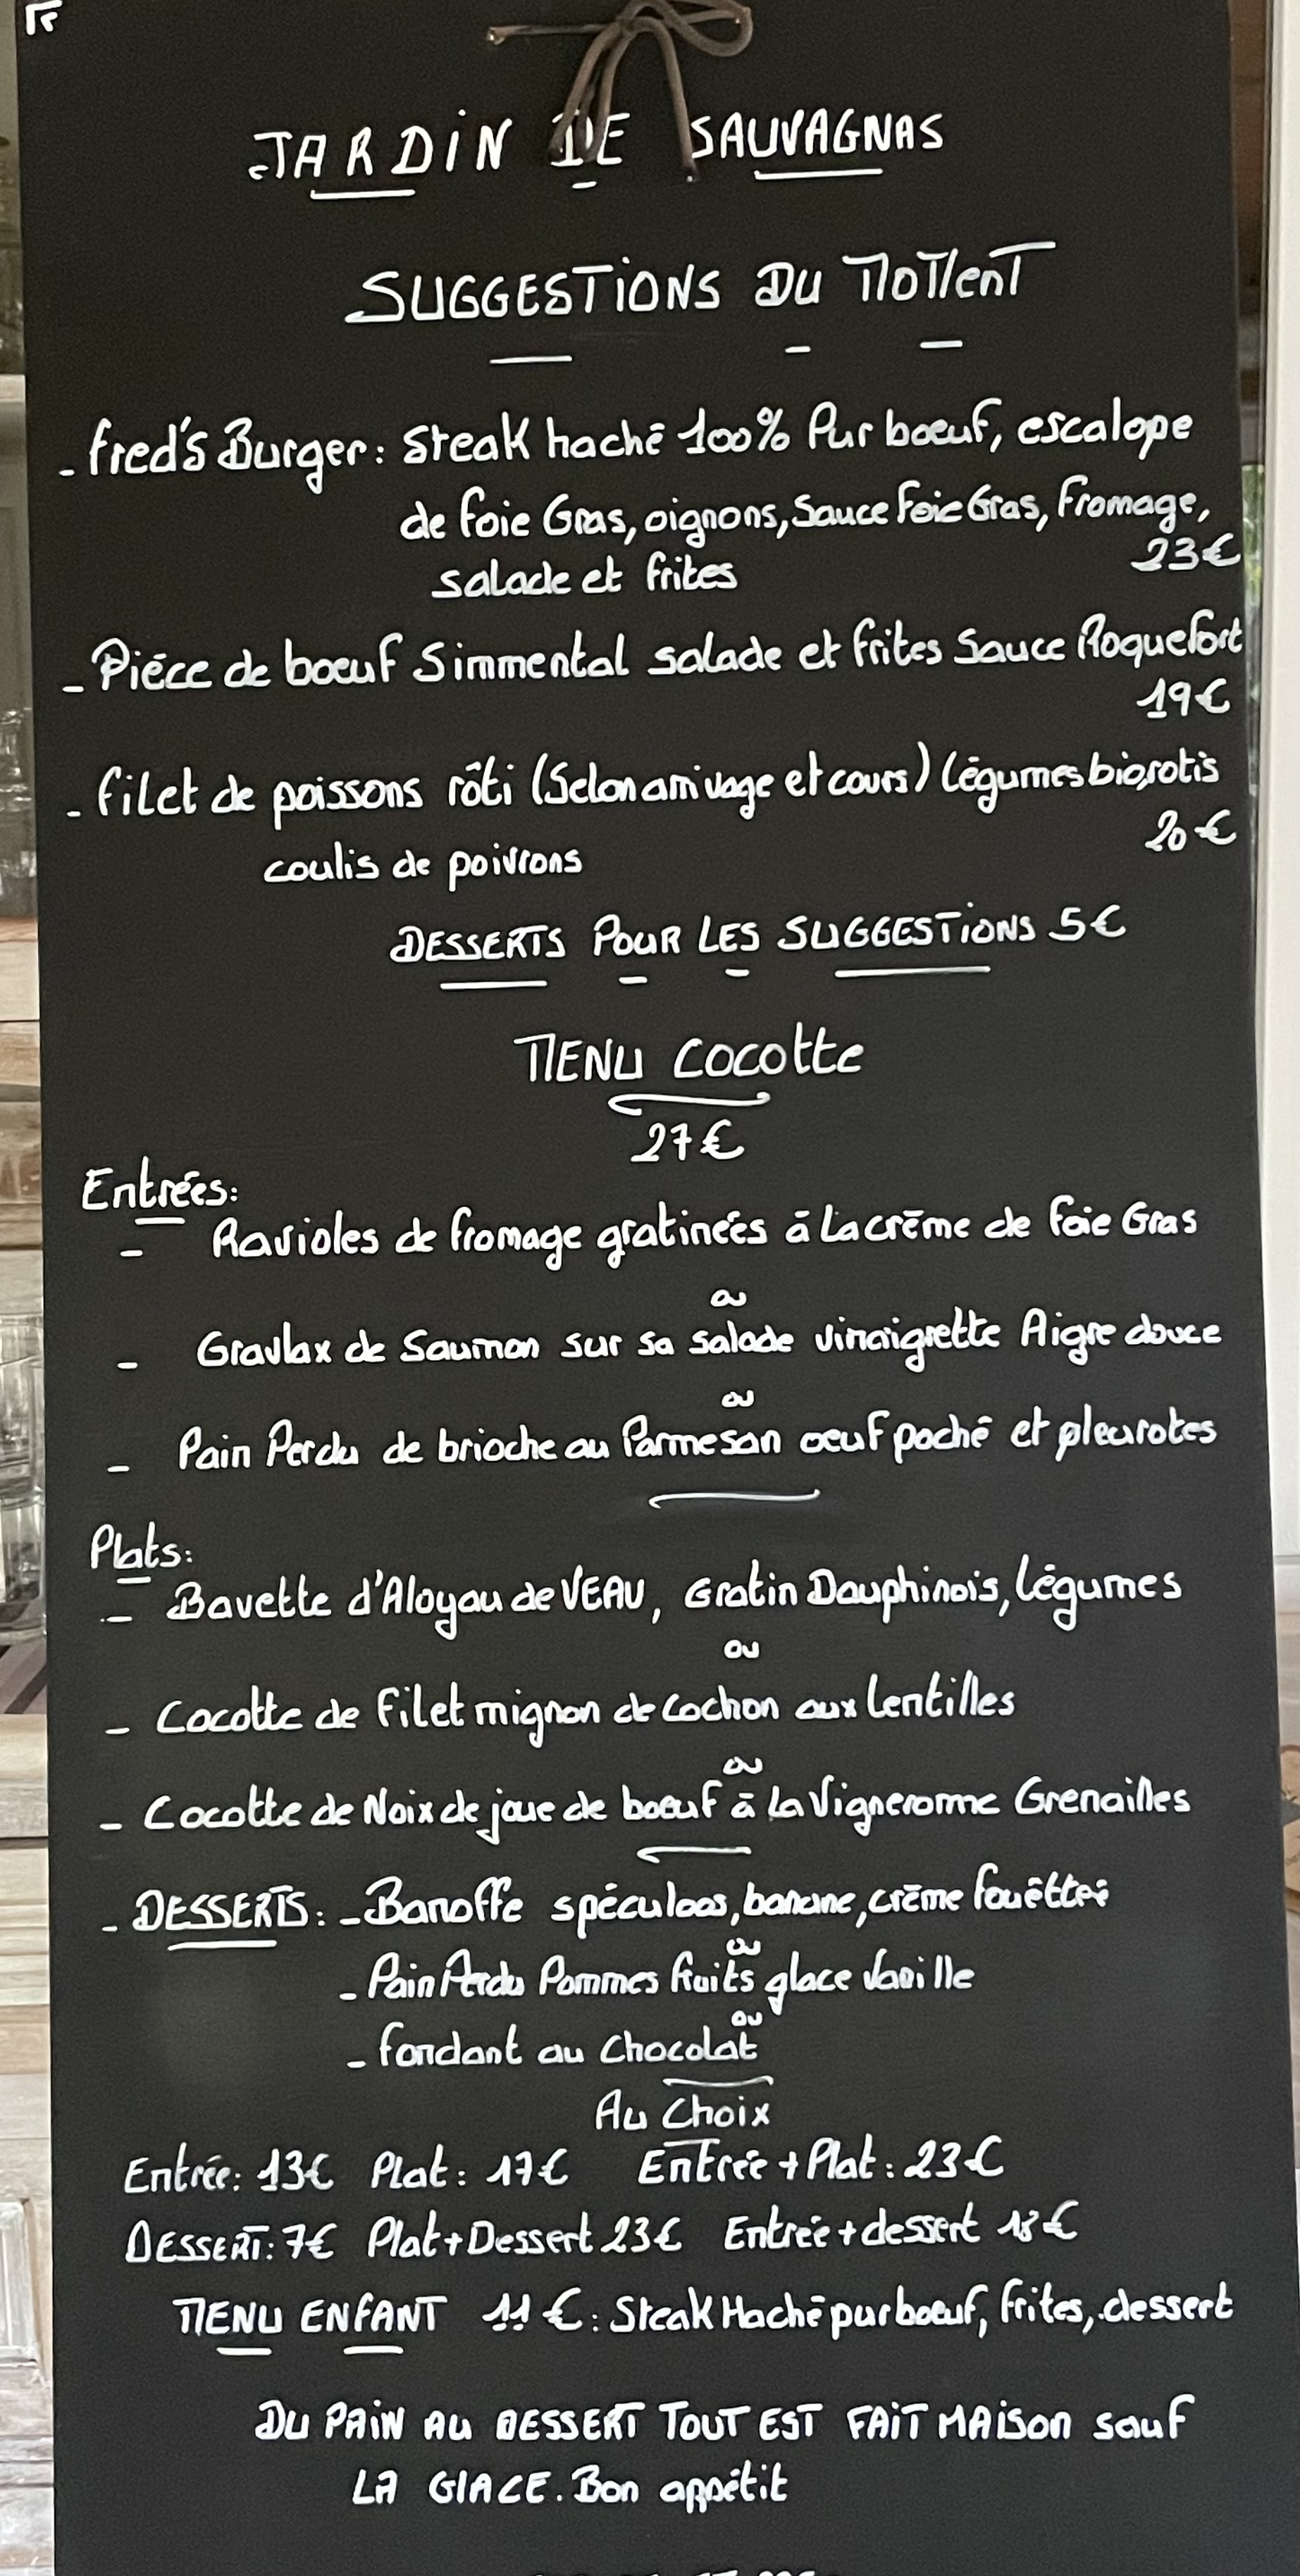 JARDIN DE SAUVAGNAS
SUGGESTIONS DU MOMENT
- Fred's Burger: Steak haché 100% Pur bœuf, escalope
de foie Gras, oignons, Sauce Foie Gras, Fromage,
23€
salade et frites
- Piéce de bœuf Simmental salade et frites Sauce Roquefort
19€
- Filet de poissons rôti (Selon arrivage et cours) Légumes bio, rotis
20€
coulis de poivrons
DESSERTS POUR LES SUGGESTIONS 5€
MENU COCOTTE
27€
Entrées:
- Ravioles de fromage gratinées à La crème de foie Gras
ou
- Gravlax de Saumon sur sa salade vinaigrette Aigre douce
ou
- Pain Perdu de brioche au Parmesan oeuf poché et pleurotes
Plats:
- Bavette d'Aloyau de VEAU, Gratin Dauphinois, légumes
ou
- Cocotte de Filet mignon de cochon aux lentilles
ou
- Cocotte de Noix de joue de boeuf à La Vigneronne Grenailles
- DESSERTS: - Banoffe spéculoos, banane, crème fouêttée
ou
- Pain Perdu Pommes fruits glace vanille
ou
- Fondant au Chocolat
Au Choix
Entrée: 13€ Plat: 17€ Entrée + Plat: 23€
DESSERT: 7€ Plat + Dessert 23€ Entrée + dessert 18€
MENU ENFANT 11€: Steak Haché pur bœuf, frites, dessert
DU PAIN AU DESSERT TOUT EST FAIT MAISON sauf
LA GLACE. Bon appétit